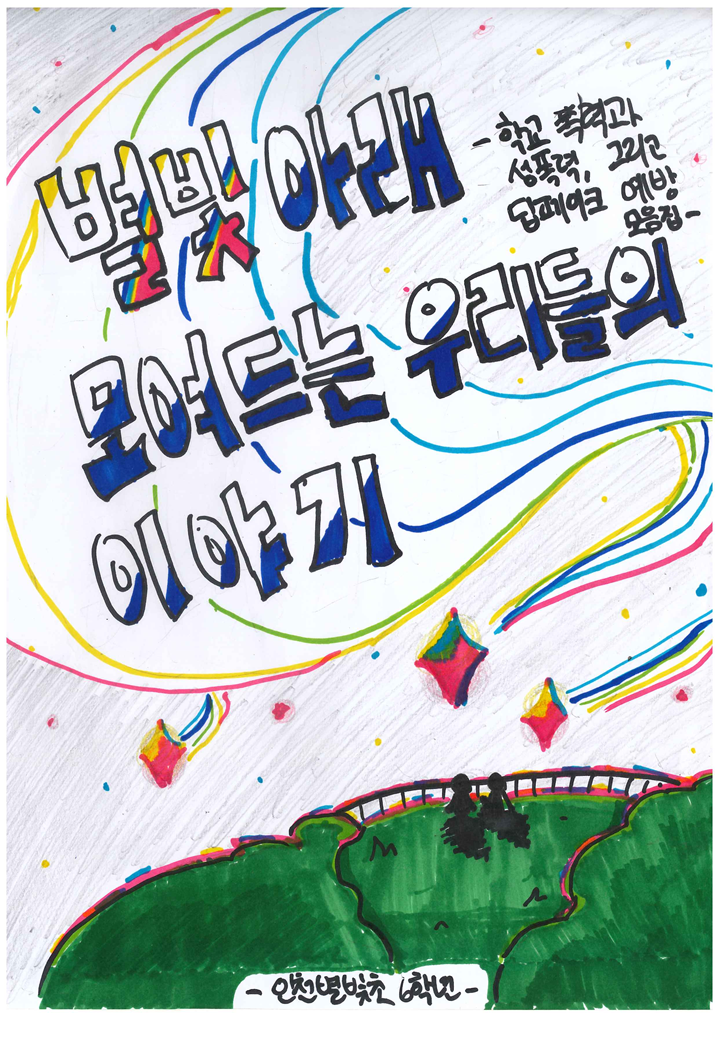 별빛 아래
- 학교 폭력과
성폭력, 그리고
딥페이크 예방
모음집 -
모여드는 우리들의
이야기
- 인천별빛초 6학년 -